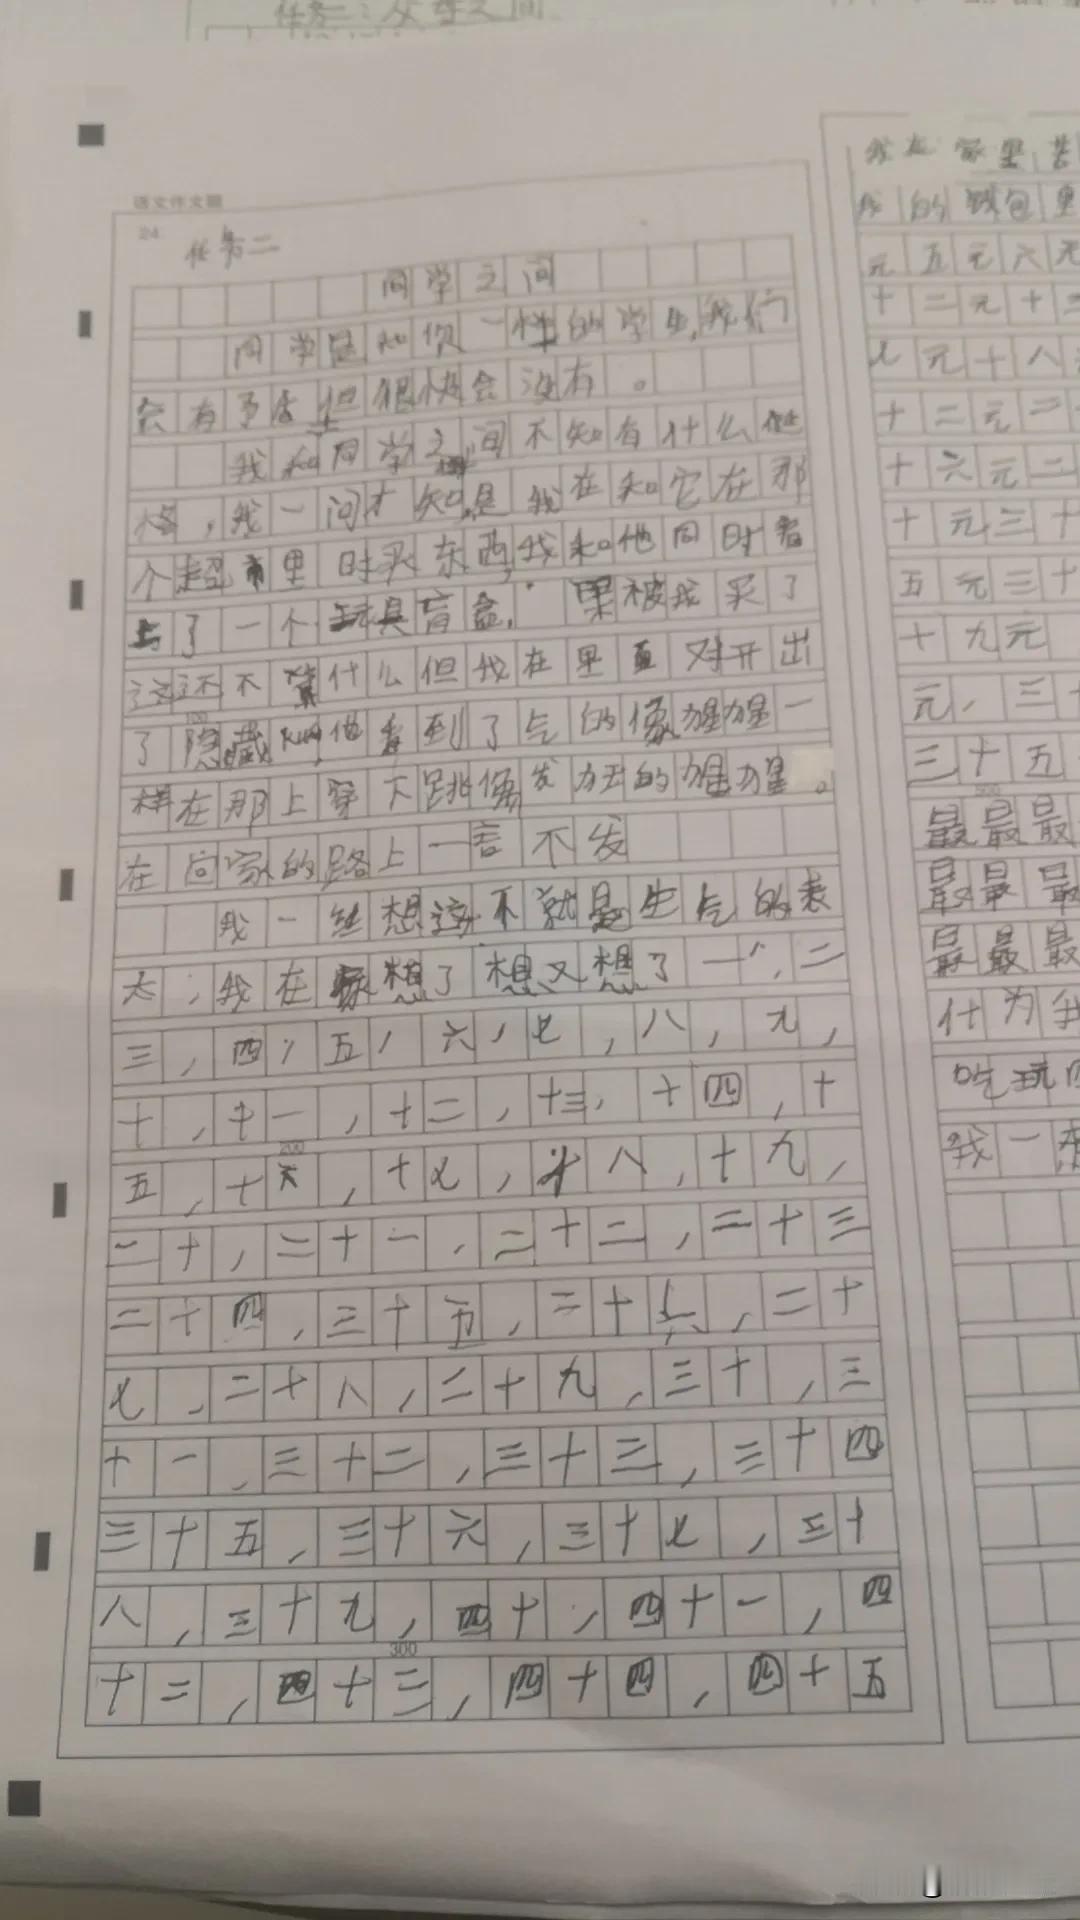 任务二:父母之间
语文作文题
24.
任务二
同学之间
同学是和你一样的学生,我们
会有矛盾但很快会没有。
我和同学之间不知有什么
,我一问才知是我在和它在那
个超市里时买东西,我和他同时看
上了一个玩具盲盒,果被我买了
这还不算什么但我在里面对开出
了隐藏他看到了气的像猩猩一
样在那上穿下跳像发狂的猩猩。
在回家的路上一言不发
我一丝想这不就是生气的表
太,我在家想了想又想了一,二
三,四,五,六,七,八,九,
十,十一,十二,十三,十四,十
五,十六,十七,十八,十九,
200
二十,二十一,二十二,二十三
二十四,三十五,二十六,二十
七,二十八,二十九,三十,三
十一,三十二,三十三,三十四
三十五,三十六,三十七,三十
八,三十九,四十,四十一,四
300
十二,四十三,四十四,四十五
我在家里
我的钱包里
元五元六元
十二元十三
七元十八
十二元二
十六元二
十元三十
五元三十
十九元
元,三十
三十五
最最最
最最最
最最最
什为我
吃玩
我一